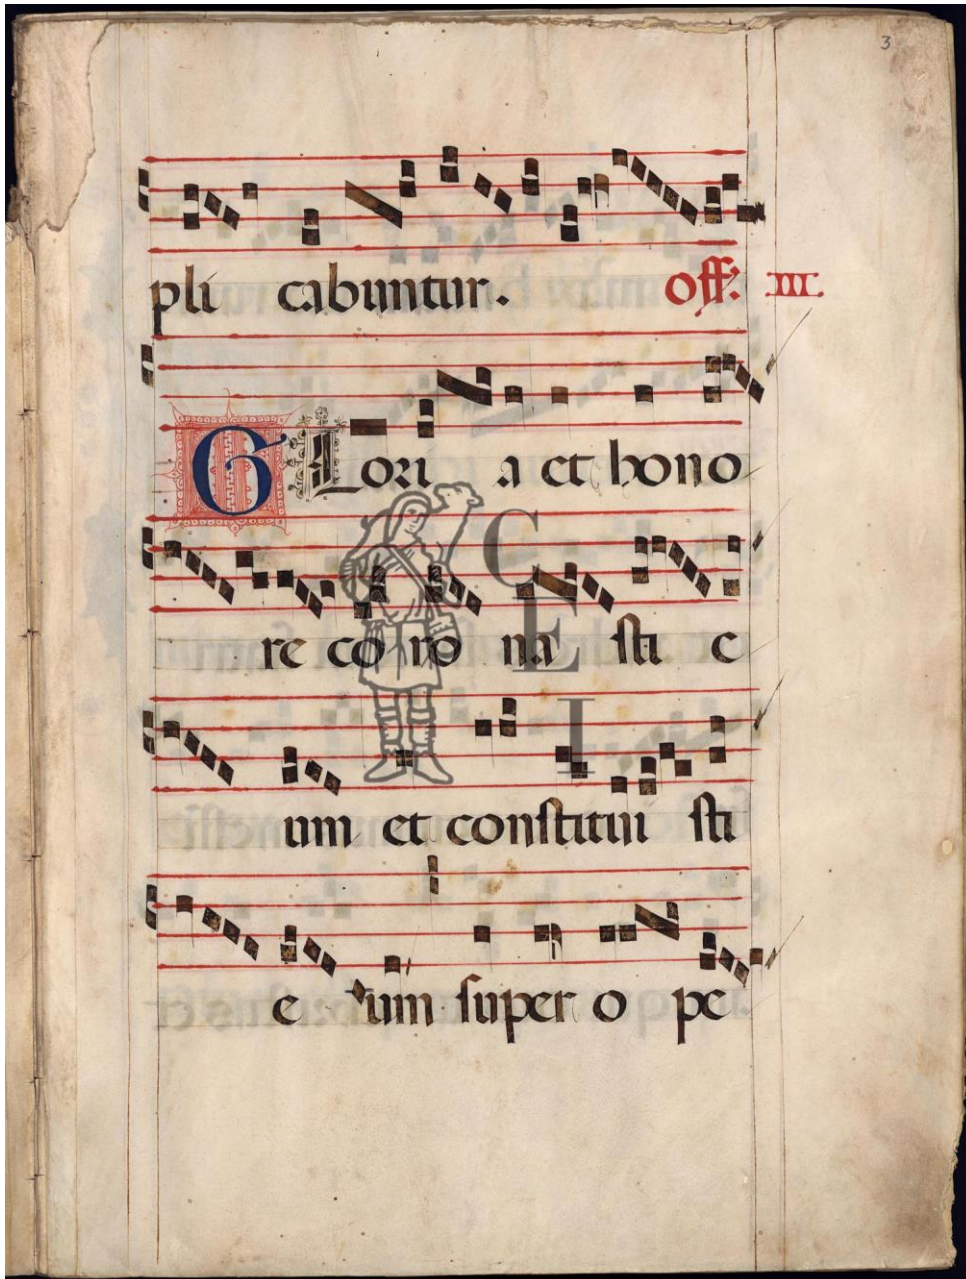 3
pli cabuntur. off: III.
GLori a et hono
re co ro na sti e
um et constitui sti
e um super o pe
CEI